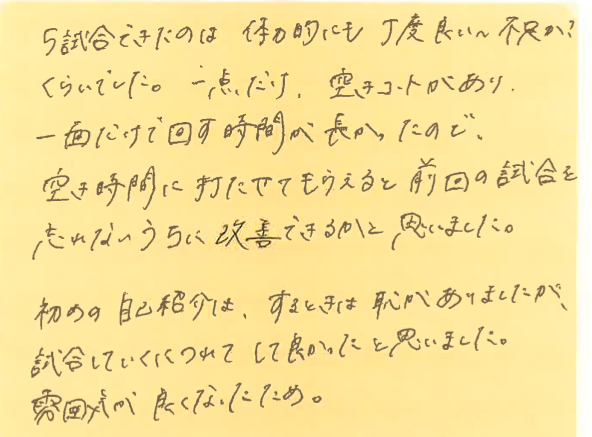 5試合できたのは 体力的にも 丁度良い〜不足か?
くらいでした。一点だけ、空きコートがあり、
一面だけで回す時間が長かったので、
空き時間に打たせてもらえると前回の試合を
忘れないうちに改善できるかと思いました。
初めの自己紹介は、するときは恥がありましたが、
試合していくにつれてして良かったと思いました。
雰囲気が良くなったため。